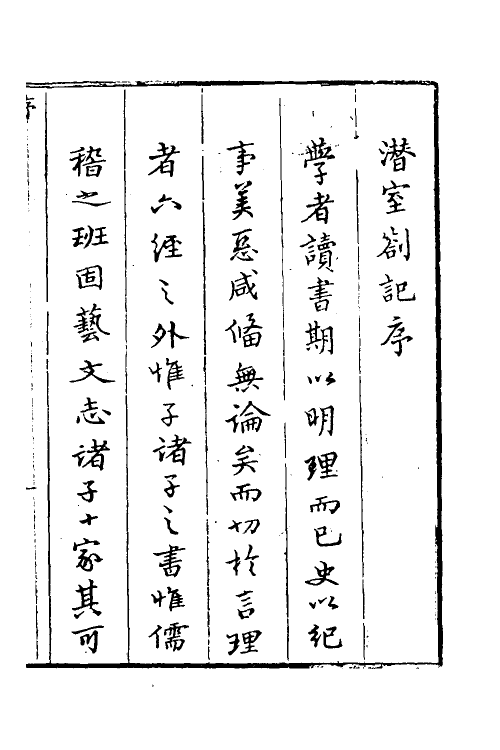 潜室劄記序
學者讀書期以明理而已史以紀
事美惡咸備無論矣而切於言理
者六經之外惟子諸子之書惟儒
稽之班固藝文志諸子十家其可
序